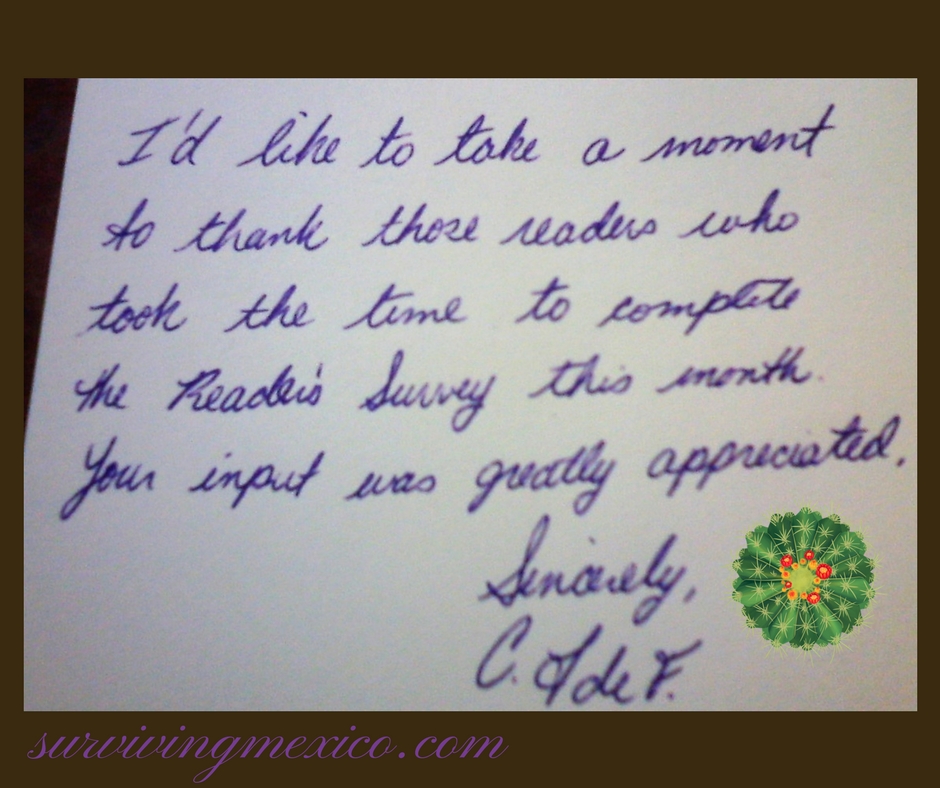 I'd like to take a moment
to thank those readers who
took the time to complete
the Reader's Survey this month.
Your input was greatly appreciated.
Sincerely,
C. de F.
survivingmexico.com